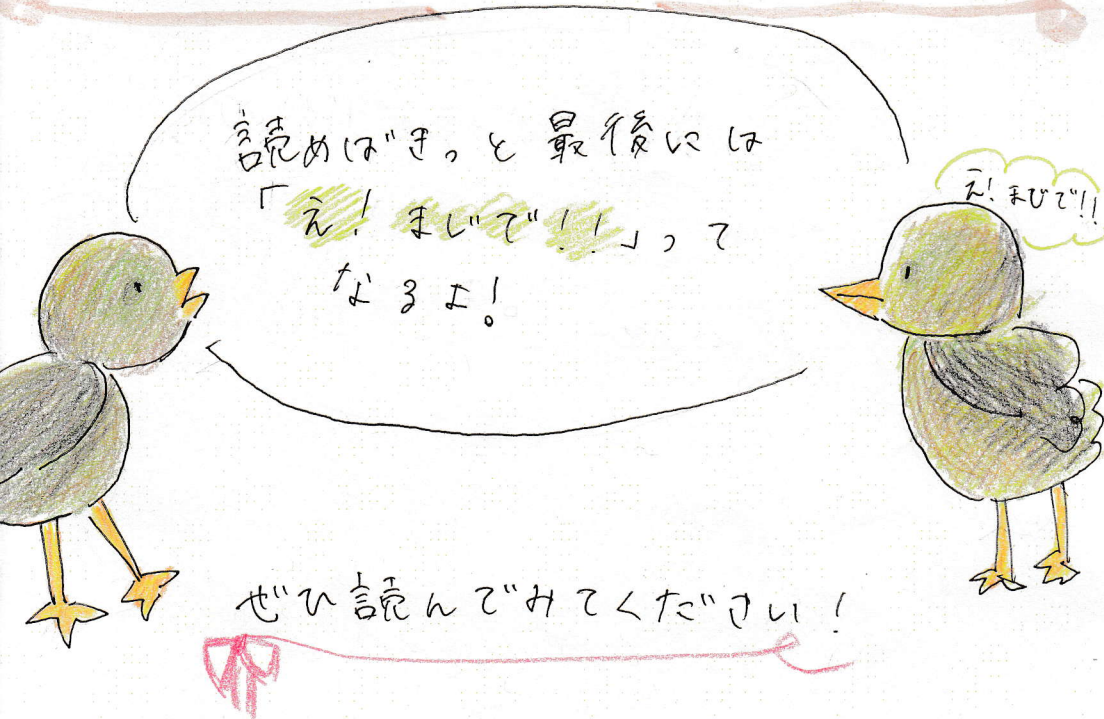 読めばきっと最後には
「え！まじで！！」って
なるよ！
え！まじで！！
ぜひ読んでみてください！